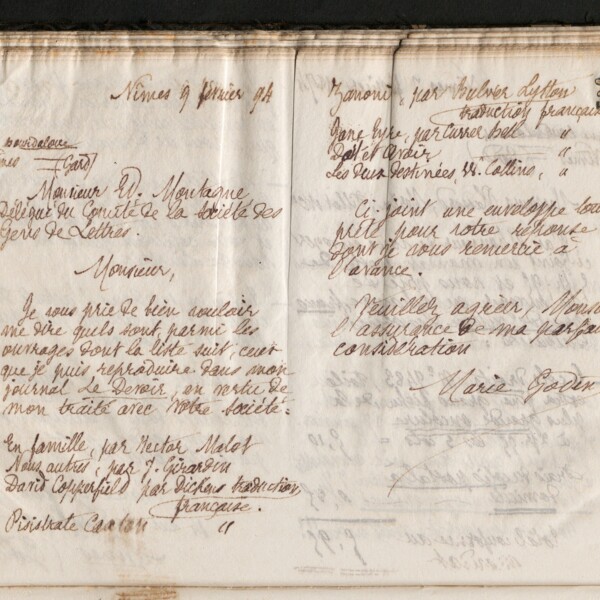 Nîmes 9 février 94
Bourdaloue
(Gard)
Monsieur Ed. Montagne
Délégué du Comité de la Société des
Gens de Lettres.
Monsieur,
Je vous prie de bien vouloir
me dire quels sont, parmi les
ouvrages dont la liste suit, ceux
que je puis reproduire dans mon
journal Le Devoir, en vertu de
mon traité avec votre Société:
En famille, par Hector Malot
Nous autres, par J. Girardin
David Copperfield par Dickens traduction
française.
Pisistrate Caxton "
Zanoni, par Bulver Lytton
traduction française
Jane Eyre, par Currer Bell "
Doit et Avoir "
Les deux destinées, W. Collins, "
Ci-joint une enveloppe tou
prête pour votre réponse
dont je vous remercie à
l'avance.
Veuillez agréer, Monsi
l'assurance de ma parfai
considération
Marie Godin